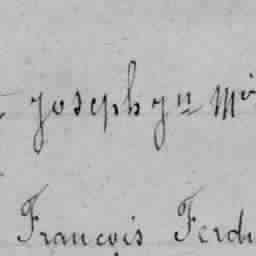 Josephyn
François Ferd